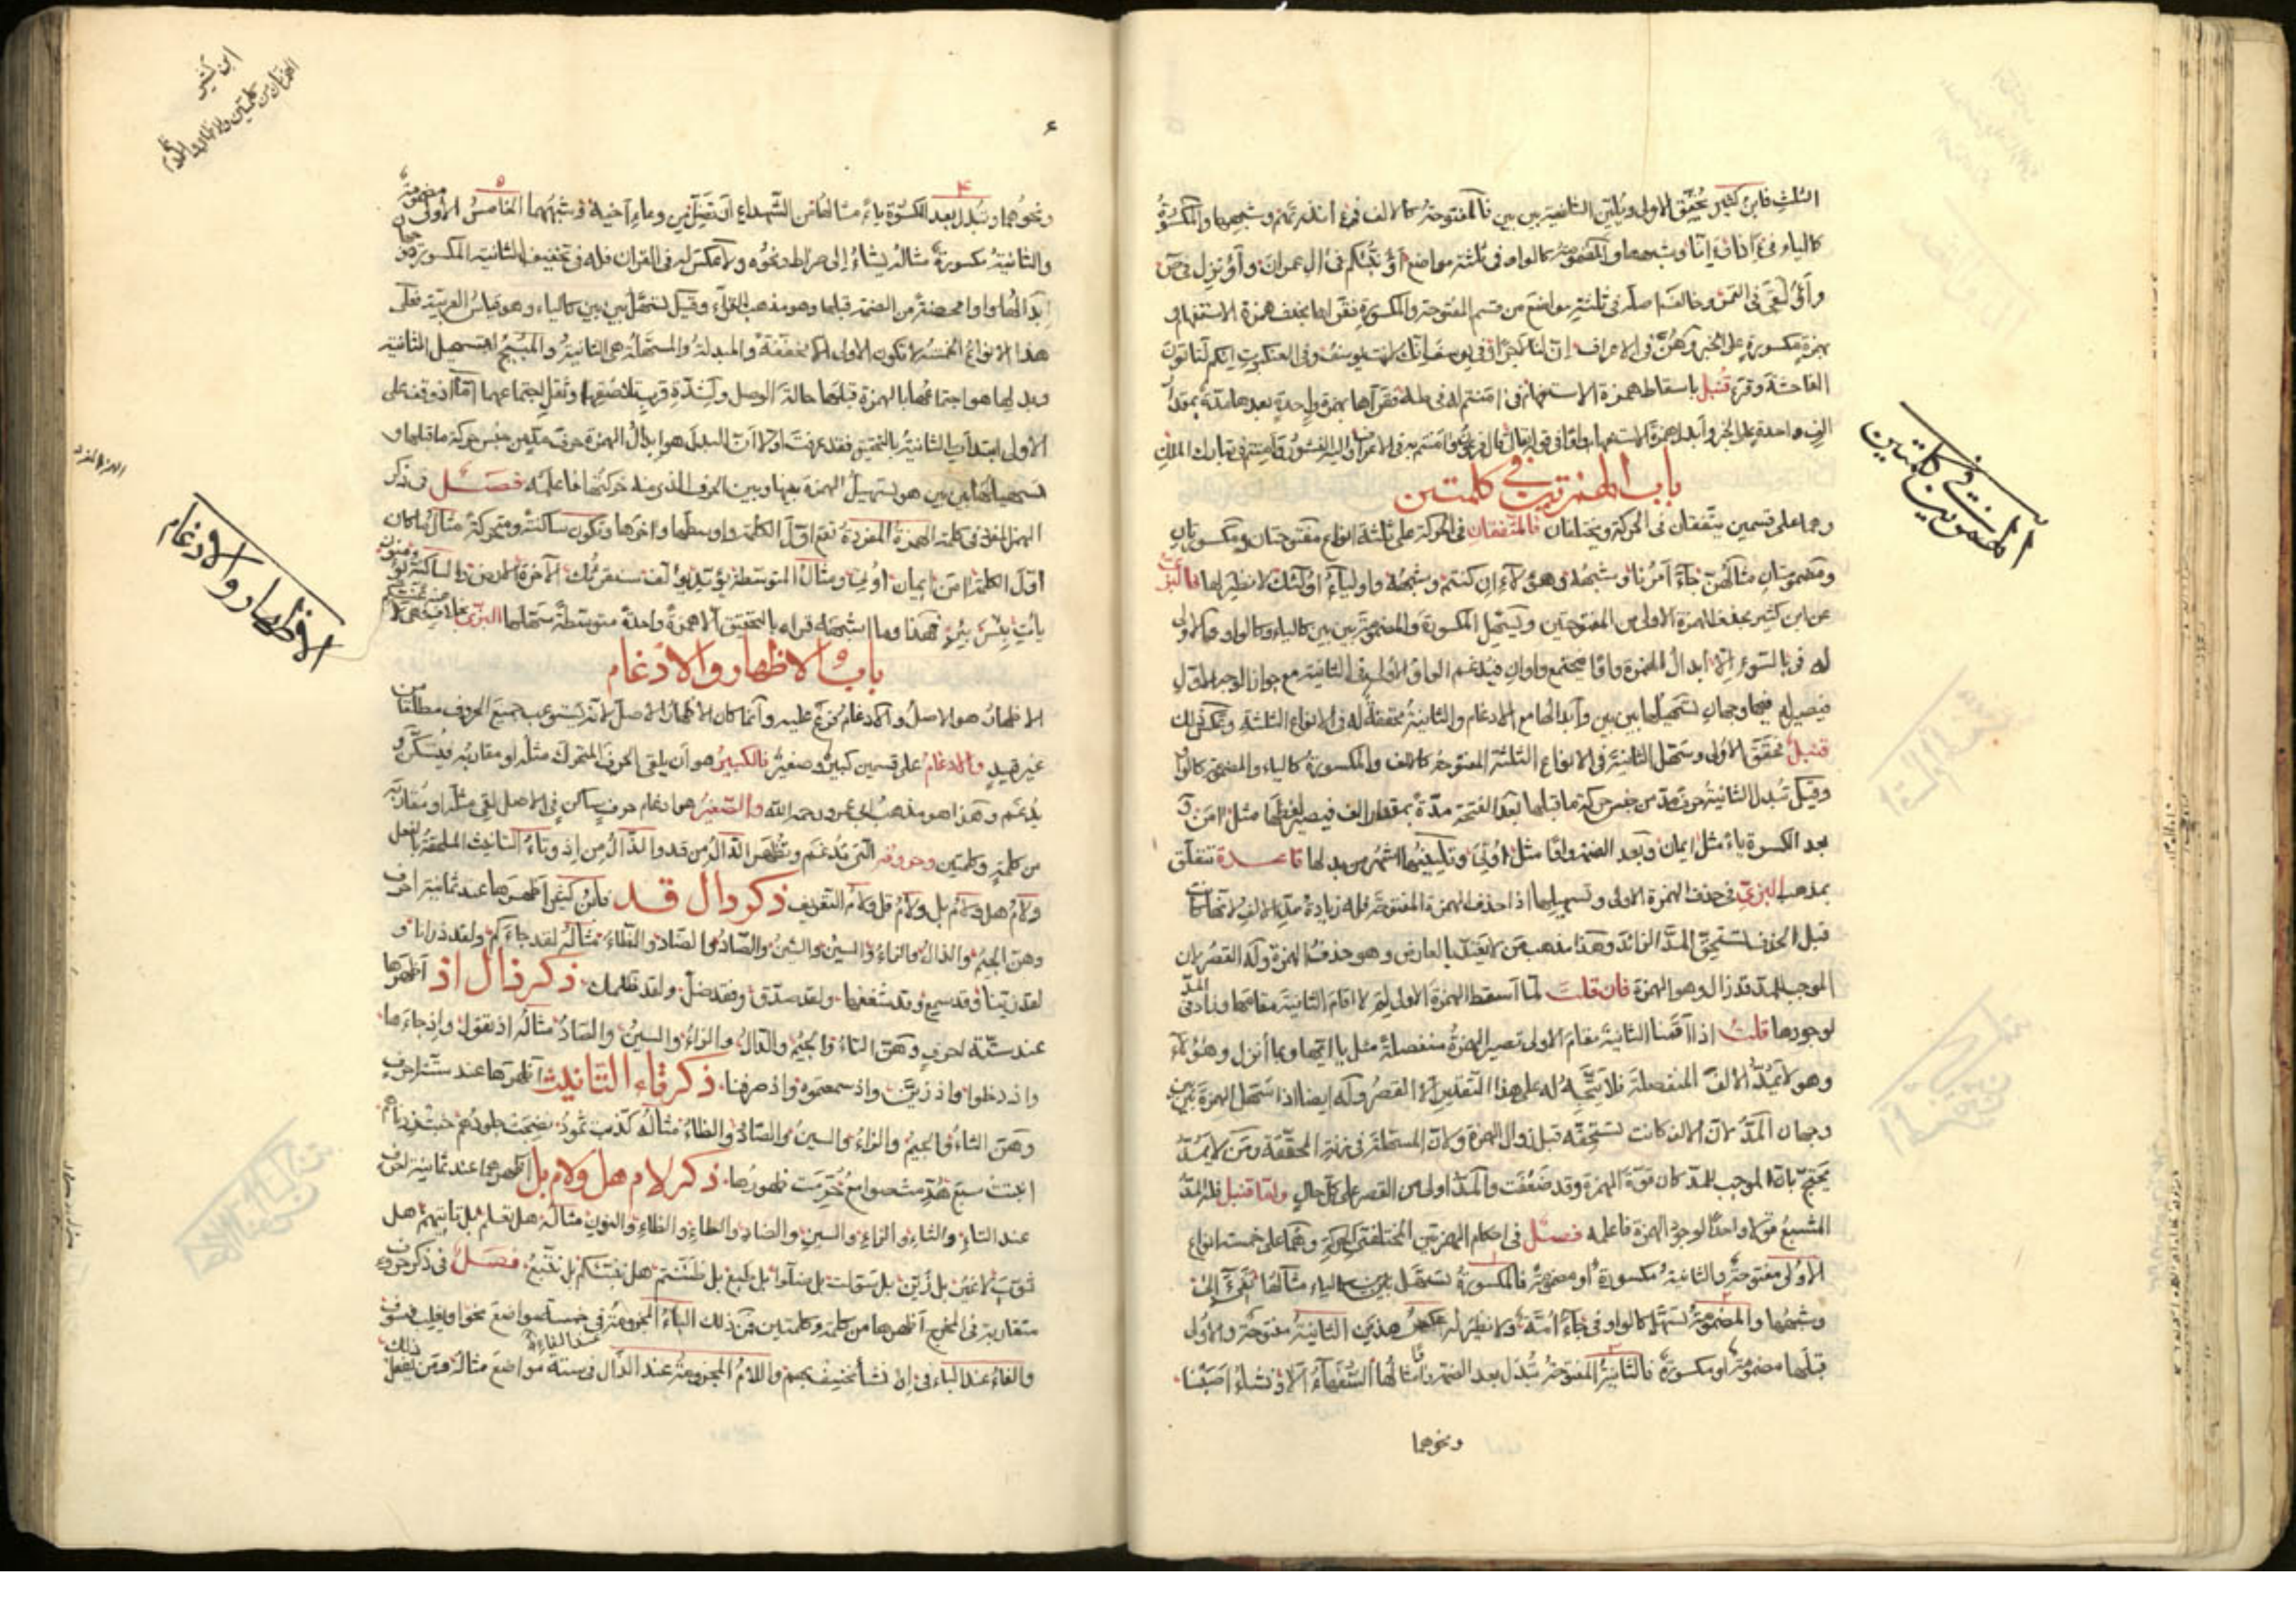 الثلث فابن كثير يحقق الاولى ويلين الثانية بين بين فالمفتوحة كالالف نحو ءانذرتهم وشبهها والمكسورة
كالياء نحو أئذا أئنا وشبهها والمضمومة كالواو في ثلثة مواضع أؤنبئكم في ال عمران وأؤنزل في ص
وأؤلقي في القمر وخالف اصله في ثلثة مواضع من قسم المفتوحة والمكسورة فقرأها بحذف همزة الاستفهام و
بهمزة مكسورة على الخبر وهن في الاعراف إن لنا لأجرا وفي يوسف إنك لأنت يوسف وفي العنكبوت إنكم لتأتون
الفاحشة وقرء قنبل باسقاط همزة الاستفهام في امنتم له في طه فقرأها بهمزة واحدة بعدها مدة بمقدار
الف واحدة على الخبر وأبدل همزة الاستفهام واوا في قوله قال فرعون وآمنتم به في الاعراف واليه النشور وأمنتم في تبارك الملك
باب الهمزتين في كلمتين
وهما على قسمين يتفقان في الحركة ويختلفان فالمتفقان في الحركة على ثلثة انواع مفتوحتان ومكسورتان
ومضمومتان مثالهن جآء أمرنا وشبهه وهؤلآء إن كنتم وشبهه واوليآء أولئك لا نظير لها فالبزي
عن ابن كثير بحذف الهمزة الاولى من المفتوحتين ويسهل المكسورة والمضمومة بين بين كالياء وكالواو
له في بالسوء إلا ابدال الهمزة واوا فيجتمع واوان فيدغم الواو الاولى في الثانية مع جواز الوجه الاول
فيصير له فيها وجهان تسهيلها بين بين وابدالها مع الادغام والثانية محققة له في الانواع الثلثة وعكس ذلك
قنبل فحقق الاولى وسهل الثانية في الانواع الثلثة المفتوحة كالالف والمكسورة كالياء والمضمومة كالواو
وقيل تبدل الثانية حرف مد من جنس حركة ما قبلها بعد الفتحة مدة بمقدار الف فيصير لفظها مثل امن و
بعد الكسرة ياء مثل ايمان وبعد الضمة واوا مثل اوتي وتليينها اشهر من بدلها قاعدة تتعلق
بمذهب البزي في حذف الهمزة الاولى وتسهيلها اذا حذف الهمزة المفتوحة فله زيادة مد الالف لانها كانت
قبل الحذف تستحق المد الزائد وهذا مذهب من لا يعتد بالعارض وهو حذف الهمزة وله القصر لان
الموجب للمد قد زال وهو الهمزة فان قلت لما أسقط الهمزة الاولى لم لا اقام الثانية مقامها وزاد في المد
لوجودها قلت اذا أقمنا الثانية مقام الاولى تصير الهمزة منفصلة مثل يا ايها وبما أنزل وهؤلآء
وهو لا يمد الالف المنفصلة فلا يتجه له على هذا التقدير إلا القصر وله ايضا اذا سهل الهمزة بين بين
وجهان المد لان الالف كانت تستحقه قبل زوال الهمزة ولان المسهلة في زنة المحققة ومن لا يمد
يحتج بان الموجب للمد كان قوة الهمزة وقد ضعفت والمد اولى من القصر على كل حال واما قنبل فله المد
المشبع قولا واحدا لوجود الهمزة فاعلمه فصل في احكام الهمزتين المختلفتي الحركة وهما على خمسة انواع
الاولى مفتوحة والثانية مكسورة او مضمومة فالمكسورة تسهل بين بين كالياء مثالها تفيء إلى
وشبهها والمضمومة تسهل كالواو في جآء أمة ولا نظير له وعكس هذين الثانية مفتوحة والاولى
قبلها مضمومة او مكسورة فالثانية المفتوحة تبدل بعد الضمة واوا مثالها السفهاء ألا ونشاء أصبنا
ونحوهما
الهمزتين في كلمتين
ابن كثير
الهمزتان من كلمتين والاظهار والادغام
ونحوهما وتبدل بعد الكسرة ياء مثالها من الشهداء أن تضل ومن وعاء أخيه وشبههما الخامس الاولى مضمومة
والثانية مكسورة مثاله يشاء إلى صراط ونحوه ولا عكس له في القران فله في تخفيف الثانية المكسورة وجهان
ابدالها واوا محضة من الضمة قبلها وهو مذهب القراء وقيل تسهل بين بين كالياء وهو قياس العربية فعلى
هذا الانواع الخمسة لا تكون الاولى الا محققة والمبدلة والمسهلة هي الثانية والمبيح لتسهيل الثانية
وبدلها هو اجتماعها بالهمزة قبلها حالة الوصل ولشدة قربها وثقل اجتماعهما أما اذا وقف على
الاولى ابتدأ بالثانية بالتحقيق فقد عرفت اولا ان البدل هو ابدال الهمزة حرف مد من جنس حركة ما قبلها و
تسهيلها بين بين هو تسهيل الهمزة بينها وبين الحرف الذي منه حركتها فاعلمه فصل في ذكر
الهمز المفرد في كلمة الهمزة المفردة تقع اول الكلمة واوسطها واخرها وتكون ساكنة ومتحركة مثال ما كان
اول الكلمة امن ايمان اوتي ومثال المتوسطة يؤيد يؤلف سنقرئك الآخرة الارض والساكنة يؤمنون
يأت بئس بئر فهذا وما اشبهه قراه بالتحقيق الا همزة واحدة متوسطة سهلها البزي بخلاف
باب الاظهار والادغام
الاظهار هو الاصل والادغام فرع عليه وانما كان الاظهار الاصل لانه يستوعب جميع الحروف مطلقا من
غير قيد والادغام على قسمين كبير وصغير فالكبير هو ان يلقى الحرف المتحرك مثله او مقاربه فيسكن و
يدغم وهذا هو مذهب ابي عمرو رحمه الله والصغير هو ادغام حرف ساكن في الاصل لقي مثله او مقاربه
من كلمة وكلمتين وحروفه التي تدغم وتظهر الدال من قد والذال من اذ وتاء التانيث الملحقة بالفعل
ولام هل ولام بل ولام قل ولام التعريف ذكر دال قد فابن كثير اظهرها عند ثمانية احرف
وهن الجيم والذال والزاء والسين والشين والصاد والضاد والظاء مثاله لقد جاءكم ولقد ذرانا و
لقد زينا وقد سمع وقد شغفها ولقد صدق وفقد ضل ولقد ظلمك ذكر ذال اذ اظهرها
عند ستة احرف وهن التاء والجيم والدال والزاء والسين والصاد مثاله اذ تقول واذ جاءها
واذ دخلوا واذ زين واذ سمعتموه واذ صرفنا ذكر تاء التانيث اظهرها عند ستة احرف
وهن الثاء والجيم والزاء والسين والصاد والظاء مثاله كذبت ثمود نضجت جلودهم خبت زدناهم
انبتت سبع لهدمت صوامع حرمت ظهورها ذكر لام هل ولام بل اظهرهما عند ثمانية احرف
عند التاء والثاء والزاء والسين والضاد والطاء والظاء والنون مثاله هل تعلم بل تاتيهم هل
ثوب بل زين بل سولت بل ضلوا بل طبع بل ظننتم هل ننبئكم بل نتبع فصل في ذكر حروف
متقاربة في المخرج اظهرها من كلمة وكلمتين فمن ذلك الباء المجزومة عند الفاء في خمسة مواضع نحو او يغلب فسوف
والفاء عند الباء في إن نشأ نخسف بهم واللام المجزومة عند الذال في ستة مواضع مثاله ومن يفعل ذلك
الاظهار والادغام